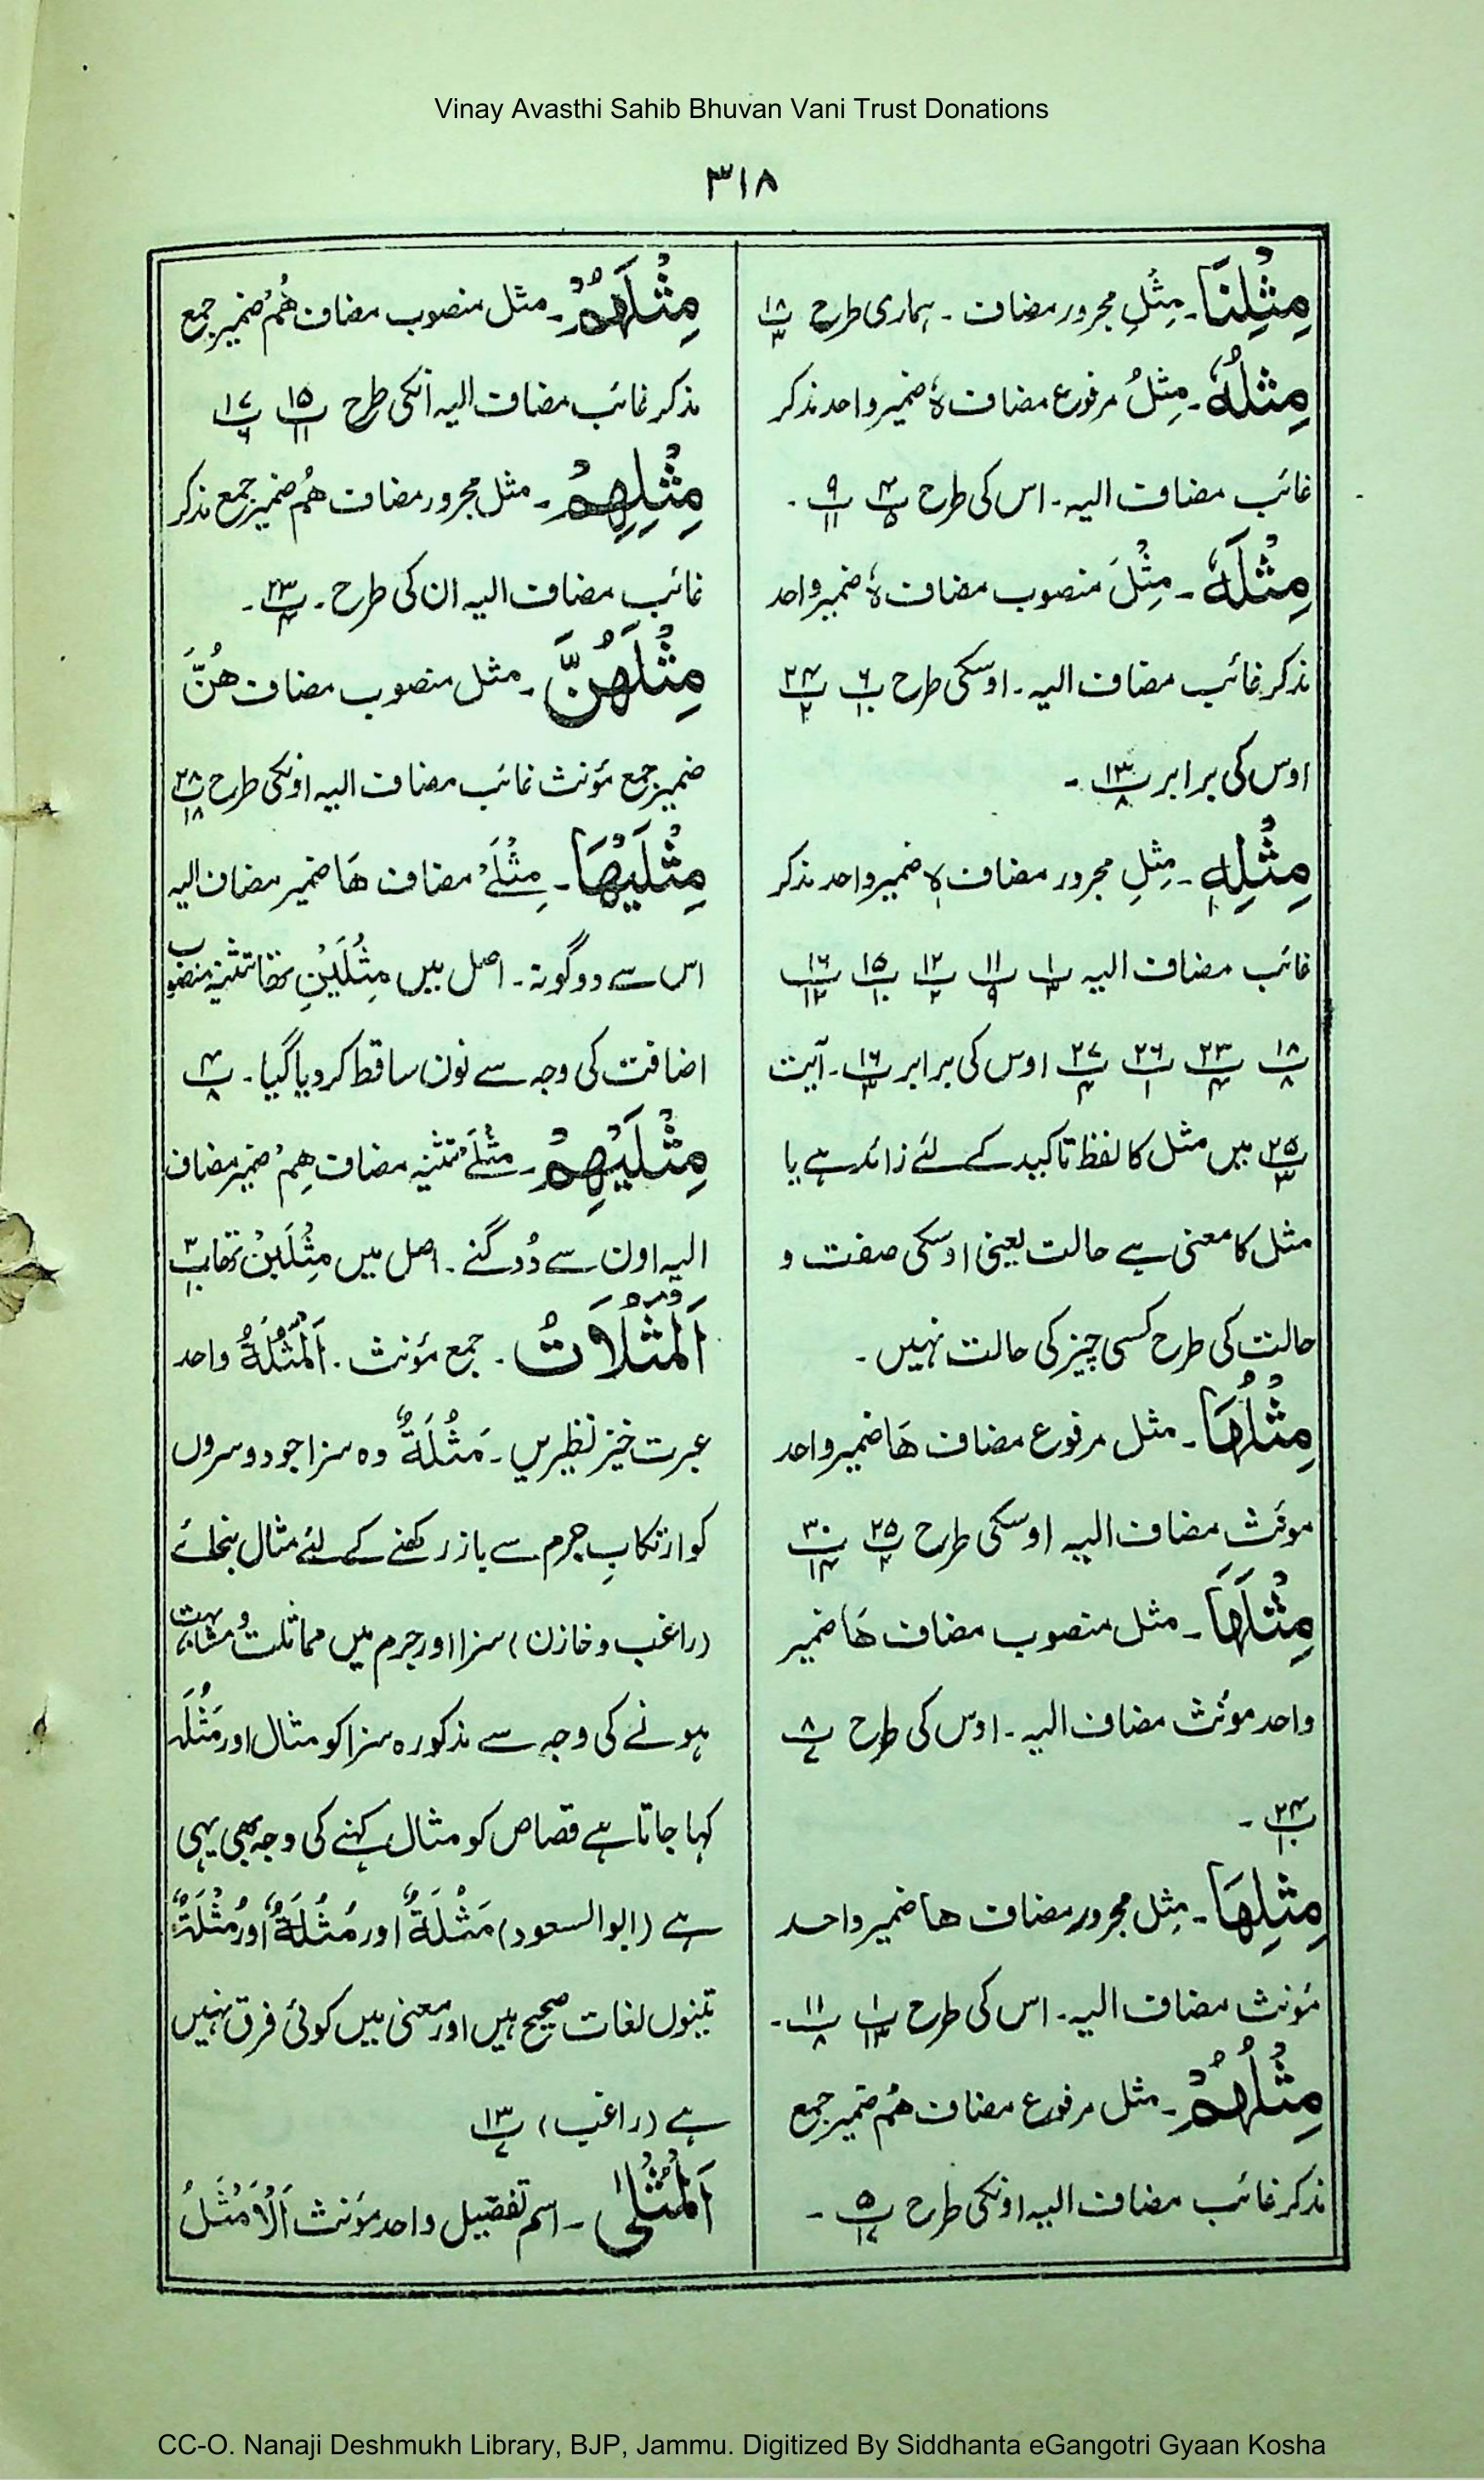 Vinay Avasthi Sahib Bhuvan Vani Trust Donations
۳۱۸
مِثْلِنَا۔ مِثْلِ مجرور مضاف ۔ ہماری طرح پ۱۸/۳
مِثْلُهٗ۔ مِثْلُ مرفوع مضاف هٗ ضمیر واحد مذکر
غائب مضاف الیہ۔ اس کی طرح پ۴/۵ پ۹/۱۱ ۔
مِثْلَهٗ۔ مِثْلَ منصوب مضاف هٗ ضمیر واحد
مذکر غائب مضاف الیہ ۔ اوسکی طرح پ۶/۱۰ پ۲۴/۲
اوس کی برابر پ۱۳/۸ ۔
مِثْلِهٖ۔ مِثْلِ مجرور مضاف هٖ ضمیر واحد مذکر
غائب مضاف الیہ پ۱/۳ پ۱۱/۹ پ۱۲/۲ پ۱۵/۱۰ پ۱۶/۱۲
پ۱۸/۸ پ۲۳/۴ پ۲۶/۱ پ۲۷/۴ اوس کی برابر پ۱۶/۳ ۔ آیت
پ۲۵/۳ میں مثل کا لفظ تاکید کے لئے زائد ہے یا
مثل کا معنی ہے حالت یعنی اوسکی صفت و
حالت کی طرح کسی چیز کی حالت نہیں ۔
مِثْلُهَا۔ مثل مرفوع مضاف هَا ضمیر واحد
مونث مضاف الیہ اوسکی طرح پ۲۵ پ۳۰/۱۴
مِثْلَهَا۔ مثل منصوب مضاف هَا ضمیر
واحد مونث مضاف الیہ ۔ اوس کی طرح پ۸/۷
پ۲۴/۱۰ ۔
مِثْلِهَا۔ مِثْلِ مجرور مضاف ها ضمیر واحد
مؤنث مضاف الیہ۔ اس کی طرح پ۱/۱۳ پ۱۱/۸ ۔
مِثْلُهُمْ۔ مثل مرفوع مضاف هُمْ ضمیر جمع
مذکر غائب مضاف الیہ اونکی طرح پ۵/۱۷ ۔
مِثْلَهُمْ۔ مثل منصوب مضاف هُمْ ضمیر جمع
مذکر غائب مضاف الیہ انکی طرح پ۱۵/۱۱ پ۱۷/۶
مِثْلِهِمْ۔ مثل مجرور مضاف هُمْ ضمیر جمع مذکر
غائب مضاف الیہ ان کی طرح ۔ پ۲۳ ۔
مِثْلَهُنَّ۔ مثل منصوب مضاف هُنَّ
ضمیر جمع مؤنث غائب مضاف الیہ اونکی طرح پ۲۸/۱۸
مِثْلَيْهَا۔ مِثْلَےْ مضاف هَا ضمیر مضاف الیہ
اس سے دوگونہ ۔ اصل میں مِثْلَيْنِ تھا تثنیہ منصوب
اضافت کی وجہ سے نون ساقط کر دیا گیا ۔ پ۴/۸
مِثْلَيْهِمْ۔ مِثْلَےْ تثنیہ مضاف هِمْ ضمیر مضاف
الیہ اون سے دُوگنے ۔ اصل میں مِثْلَيْنِ تھا پ۳/۱۰
اَلْمَثُلَاتُ ۔ جمع مؤنث ۔ اَلْمَثُلَةُ واحد
عبرت خیز نظیریں ۔ مَثُلَةٌ وہ سزا جو دوسروں
کو ارتکابِ جرم سے باز رکھنے کے لئے مثال بنجائے
(راغب و خازن) سزا اور جرم میں مماثلت و مشابہت
ہونے کی وجہ سے مذکورہ سزا کو مثال اور مَثُلَہ
کہا جاتا ہے قصاص کو مثال کہنے کی وجہ بھی یہی
ہے (ابو السعود) مَثْلَةٌ اور مَثُلَةٌ اور مُثْلَةٌ
تینوں لغات صحیح ہیں اور معنی میں کوئی فرق نہیں
ہے (راغب) پ۱۳/۷
اَلْمُثْلٰی ۔ اسم تفضیل واحد مؤنث اَلْاَمْثَلُ
CC-O. Nanaji Deshmukh Library, BJP, Jammu. Digitized By Siddhanta eGangotri Gyaan Kosha